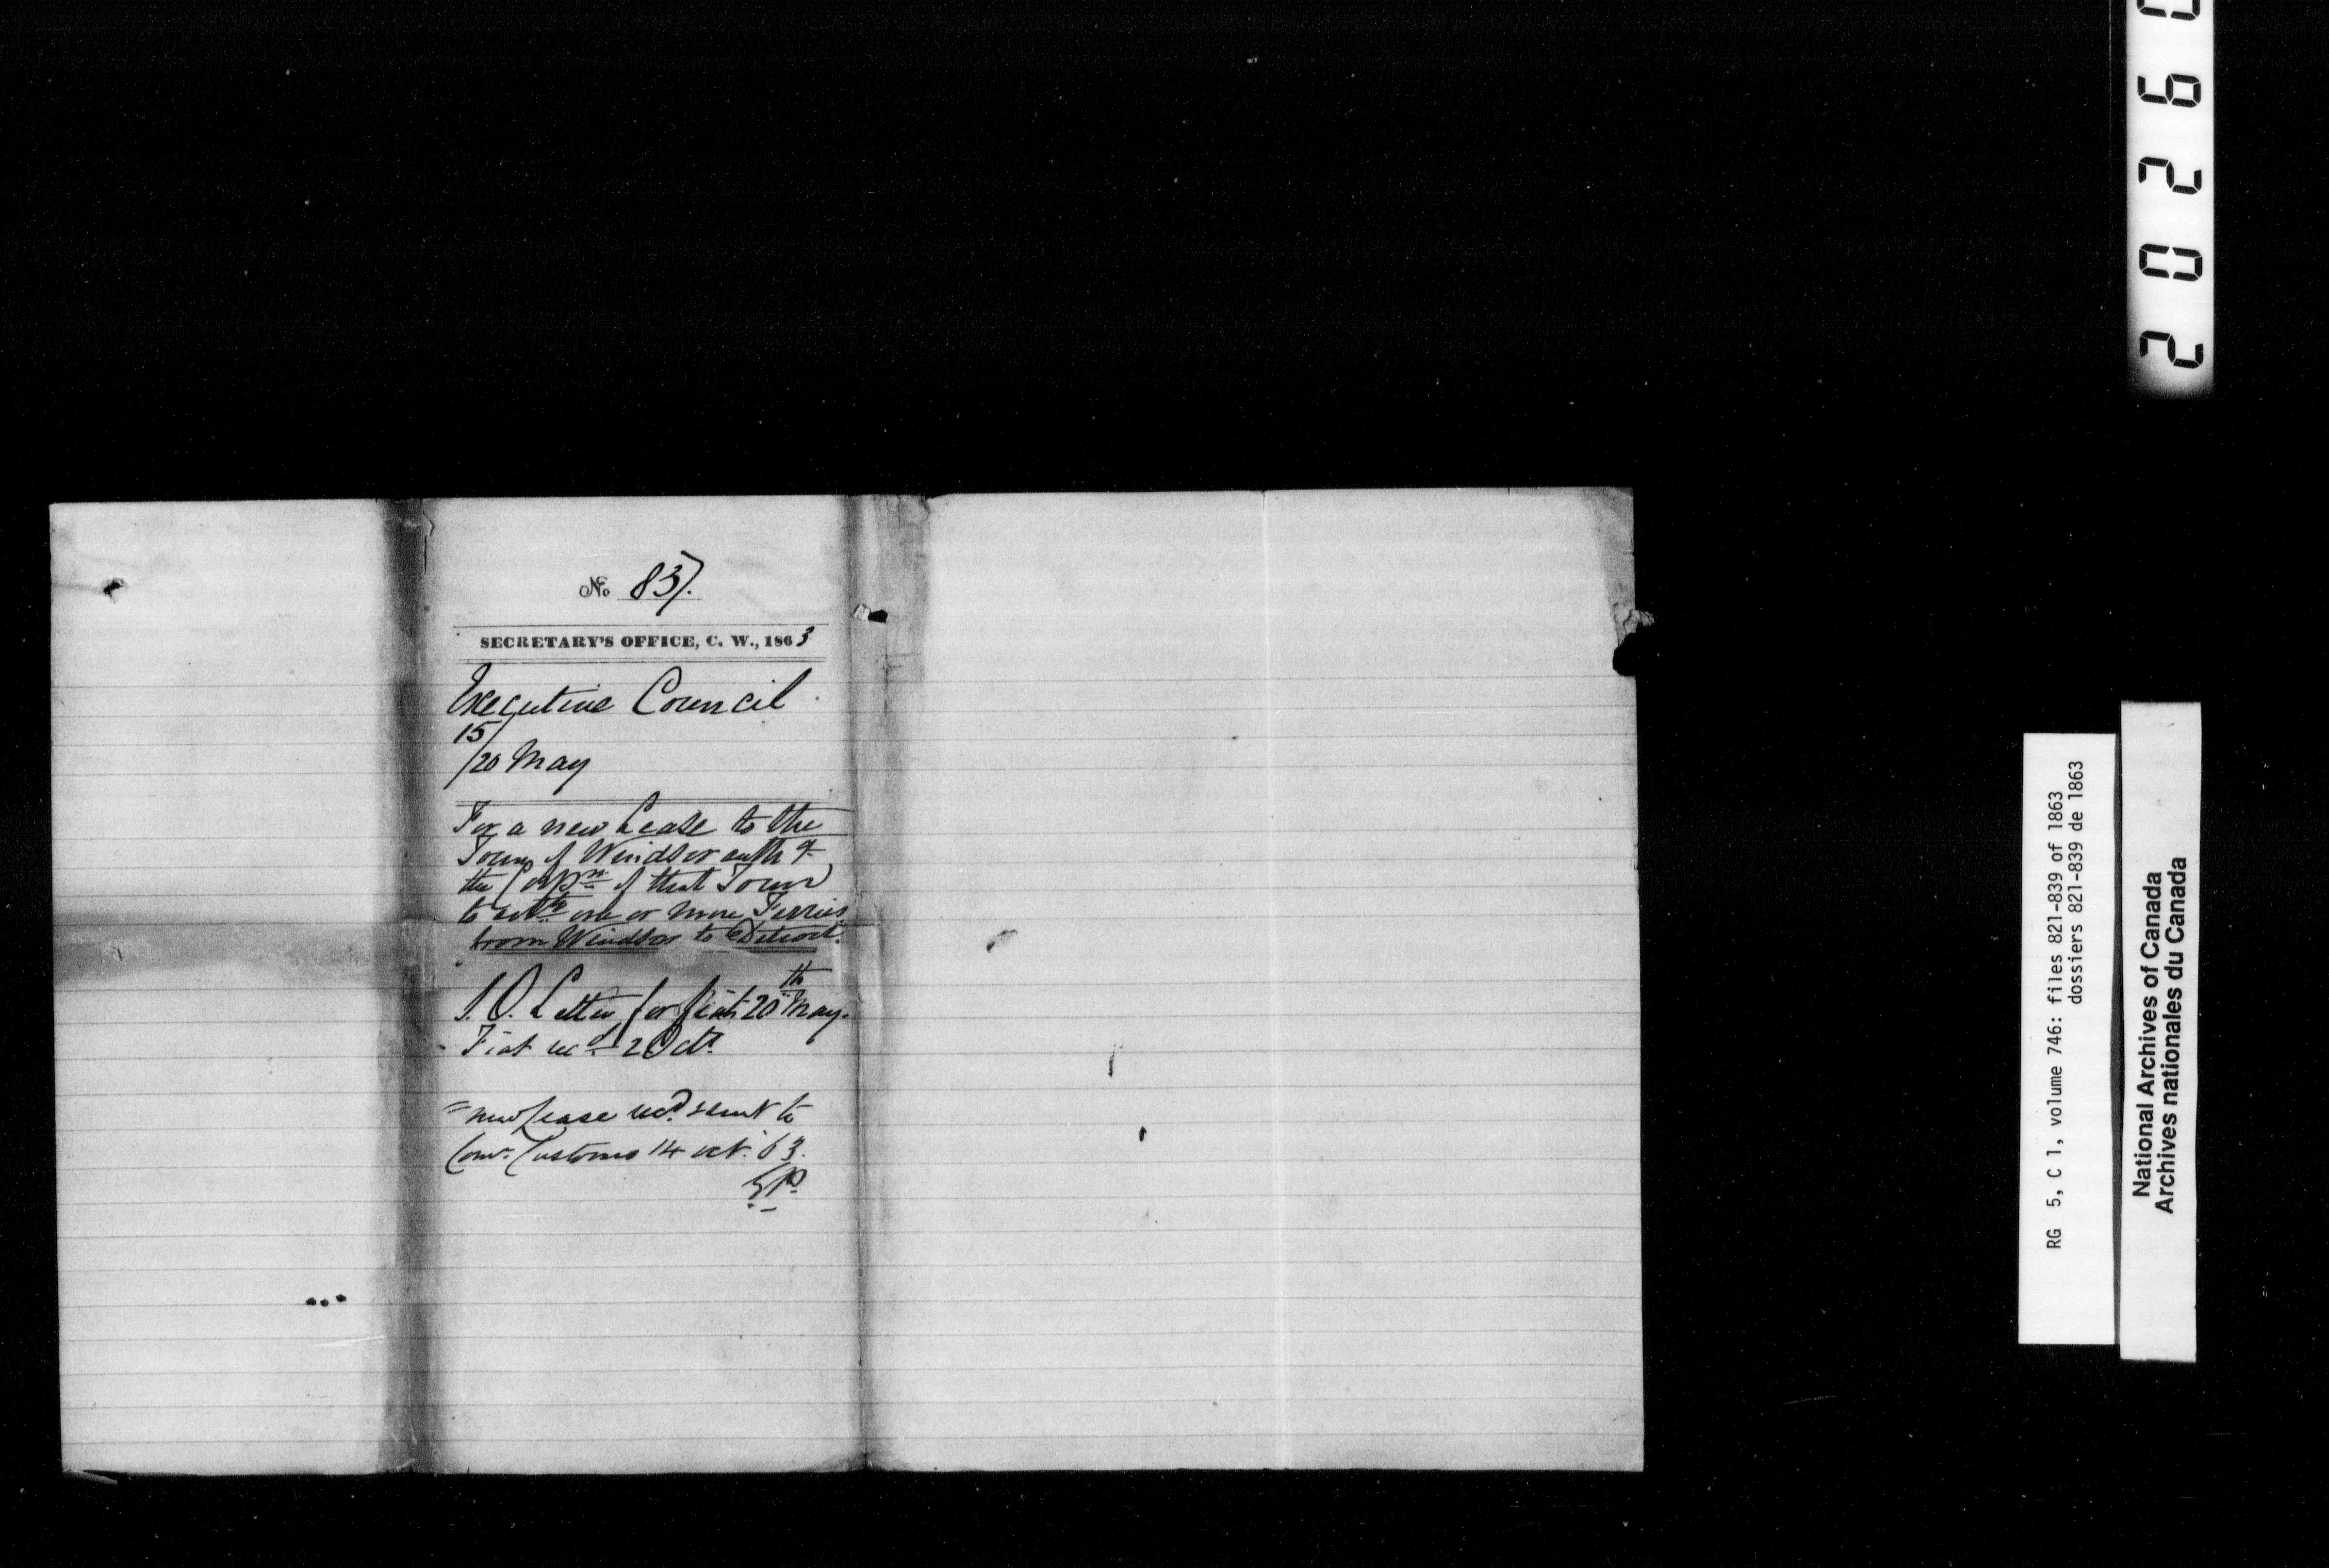 No 837.
SECRETARY'S OFFICE, C. W., 1863
Executive Council
15/
/20 May
For a new Lease to the
Town of Windsor auth g
the Corpn of that Town
to one or more Ferries
from Windsor to Detroit.
S. O. Letter for fiat 20th May.
Fiat recd 2 Oct.
new Lease recd & sent to
Comr. Customs 14 Oct. 63.
2026
RG 5, C 1, volume 746: files 821-839 of 1863
dossiers 821-839 de 1863
National Archives of Canada
Archives nationales du Canada